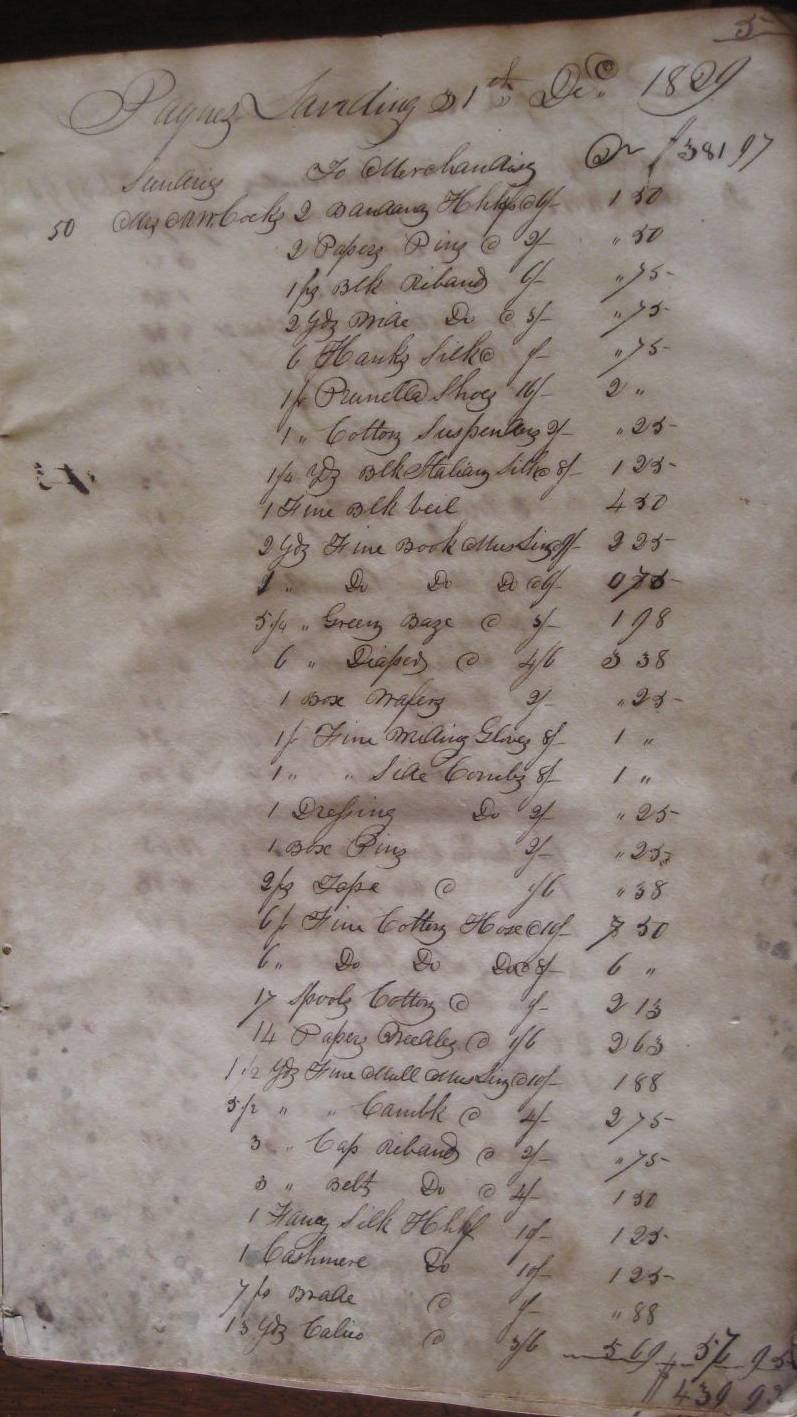 5
Paynes Landing 31st Dec. 1829
Sundries To Merchandise Dr $381 97
50 Mrs Cocks 2 Bandana Hhkfs @ 6/- 1 50
2 Papers Pins @ 2/- " 50
1 ps Blk Riband 6/- " 75
2 Yds Wide Do @ 3/- " 75
6 Hanks Silk @ 1/- " 75
1 pr Prunella Shoes 16/- 2 "
1 " Cotton Suspenders 2/- " 25
1 1/4 Yds Blk Italian Silk @ 8/- 1 25
1 Fine Blk Veil 4 50
2 Yds Fine Book Muslin 9/- 2 25
1 " Do Do Do @ 6/- 0 75
5 1/4 " Green Baze @ 3/- 1 98
6 " Diaper @ 4/6 3 38
1 Box Wafers 2/- " 25
1 pr Fine Gloves 8/- 1 "
1 " " Side Combs 8/- 1 "
1 Dressing Do 2/- " 25
1 Box Pins 2/- " 25
2 ps Tape @ 1/6 " 38
6 pr Fine Cotton Hose @ 10/- 7 50
6 " Do Do Do @ 8/- 6 "
17 Spools Cotton @ 1/- 2 13
14 Papers Needles @ 1/6 2 63
1 1/2 Yds Fine Mull Muslin @ 10/- 1 88
5 1/2 " " Cambk @ 4/- 2 75
3 " Cap Riband @ 2/- " 75
3 " Belt Do @ 4/- 1 50
1 Fancy Silk Hhkf 10/- 1 25
1 Cashmere Do 10/- 1 25
7 ps Brade @ 1/- " 88
13 Yds Calico @ 3/6 5 69 57 95
$439 92